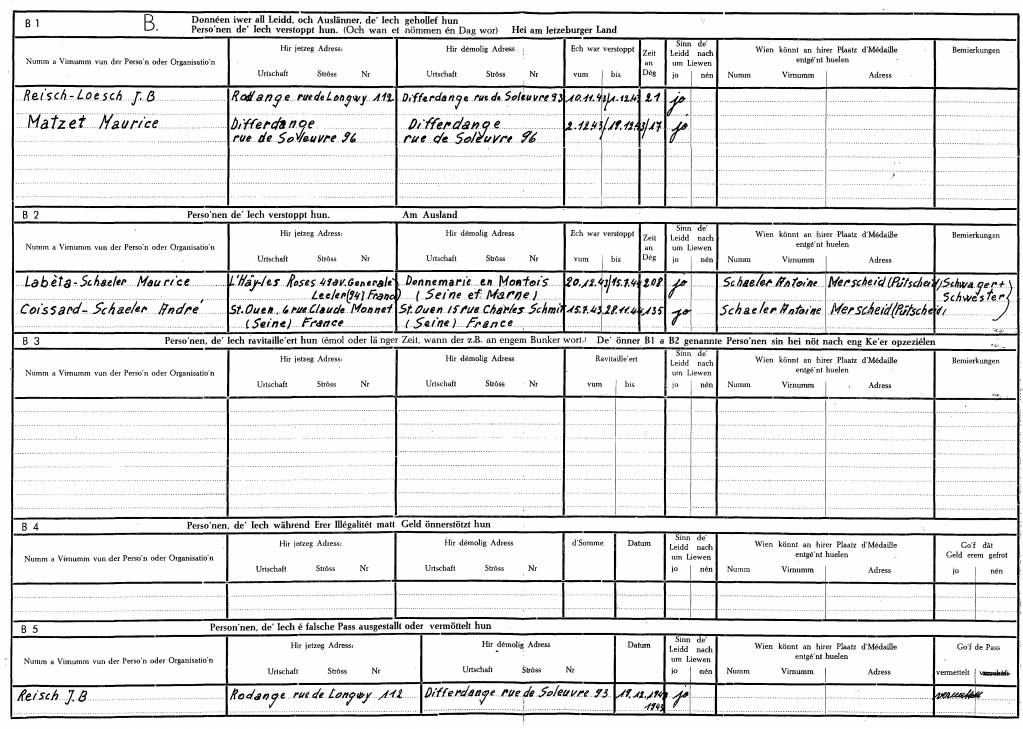 B 1
B.
Donnéen iwer all Leidd, och Auslänner, de' Iech gehollef hun
Perso'nen de' Iech verstoppt hun. (Och wan et nömmen én Dag wor) Hei am letzeburger Land
Numm a Virnumm vun der Perso'n oder Organisatio'n
Hir jetzeg Adress:
Urtschaft Ströss Nr
Hir démolig Adress
Urtschaft Ströss Nr
Ech war verstoppt
vum bis
Zeit an Dég
Sinn de' Leidd nach um Liewen
jo nén
Wien könnt an hirer Plaatz d'Médaille entgé'nt huelen
Numm Virnumm Adress
Bemierkungen
Reisch-Loesch J.B Rodange rue de Longwy 112 Differdange rue de Soleuvre 93 10.11.43 1.12.43 21 jo
Matzet Maurice Differdange Differdange 2.12.43 19.12.43 17 jo
rue de Soleuvre 96 rue de Soleuvre 96
B 2
Perso'nen de' Iech verstoppt hun. Am Ausland
Numm a Virnumm vun der Perso'n oder Organisatio'n
Hir jetzeg Adress:
Urtschaft Ströss Nr
Hir démolig Adress:
Urtschaft Ströss Nr
Ech war verstoppt
vum bis
Zeit an Dég
Sinn de' Leidd nach um Liewen
jo nén
Wien könnt an hirer Plaatz d'Médaille entgé'nt huelen
Numm Virnumm Adress
Bemierkungen
Labèta-Schaeler Maurice L'Häy-les Roses 49 av. Generale Donnemarie en Montois 20.12.43 15.7.44 208 jo Schaeler Antoine Merscheid (Pütscheid) (Schwager +
Lecler (94) France (Seine et Marne) Schwester)
Coissard-Schaeler André St. Ouen, 6 rue Claude Monnet St. Ouen 15 rue Charles Schmit 15.7.43 28.11.44 135 jo Schaeler Antoine Merscheid (Pütscheid)
(Seine) France (Seine) France
B 3
Perso'nen, de' Iech ravitaille'ert hun (émol oder lä nger Zeit, wann der z.B. an engem Bunker wort.) De' önner B1 a B2 genannte Perso'nen sin hei nöt nach eng Ke'er opzeziélen
Numm a Virnumm vun der Perso'n oder Organisatio'n
Hir jetzeg Adress:
Urtschaft Ströss Nr
Hir démolig Adress:
Urtschaft Ströss Nr
Ravitaille'ert
vum bis
Sinn de' Leidd nach um Liewen
jo nén
Wien könnt an hirer Plaatz d'Médaille entgé'nt huelen
Numm Virnumm Adress
Bemierkungen
B 4
Perso'nen, de' Iech während Erer Illégalitét matt Geld önnerstötzt hun
Numm a Virnumm vun der Perso'n oder Organisatio'n
Hir jetzeg Adress:
Urtschaft Ströss Nr
Hir démolig Adress
Urtschaft Ströss Nr
d'Somme
Datum
Sinn de' Leidd nach um Liewen
jo nén
Wien könnt an hirer Plaatz d'Médaille entgé'nt huelen
Numm Virnumm Adress
Go'f dât Geld erem gefrot
jo nén
B 5
Person'nen, de' Iech é falsche Pass ausgestallt oder vermöttelt hun
Numm a Virnumm vun der Perso'n oder Organisatio'n
Hir jetzeg Adress:
Urtschaft Ströss Nr
Hir démolig Adress
Urtschaft Ströss Nr
Datum
Sinn de' Leidd nach um Liewen
jo nén
Wien könnt an hirer Plaatz d'Médaille entgé'nt huelen
Numm Virnumm Adress
Go'f de Pass
vermettelt
Reisch J.B Rodange rue de Longwy 112 Differdange rue de Soleuvre 93 19.12. jo
1943